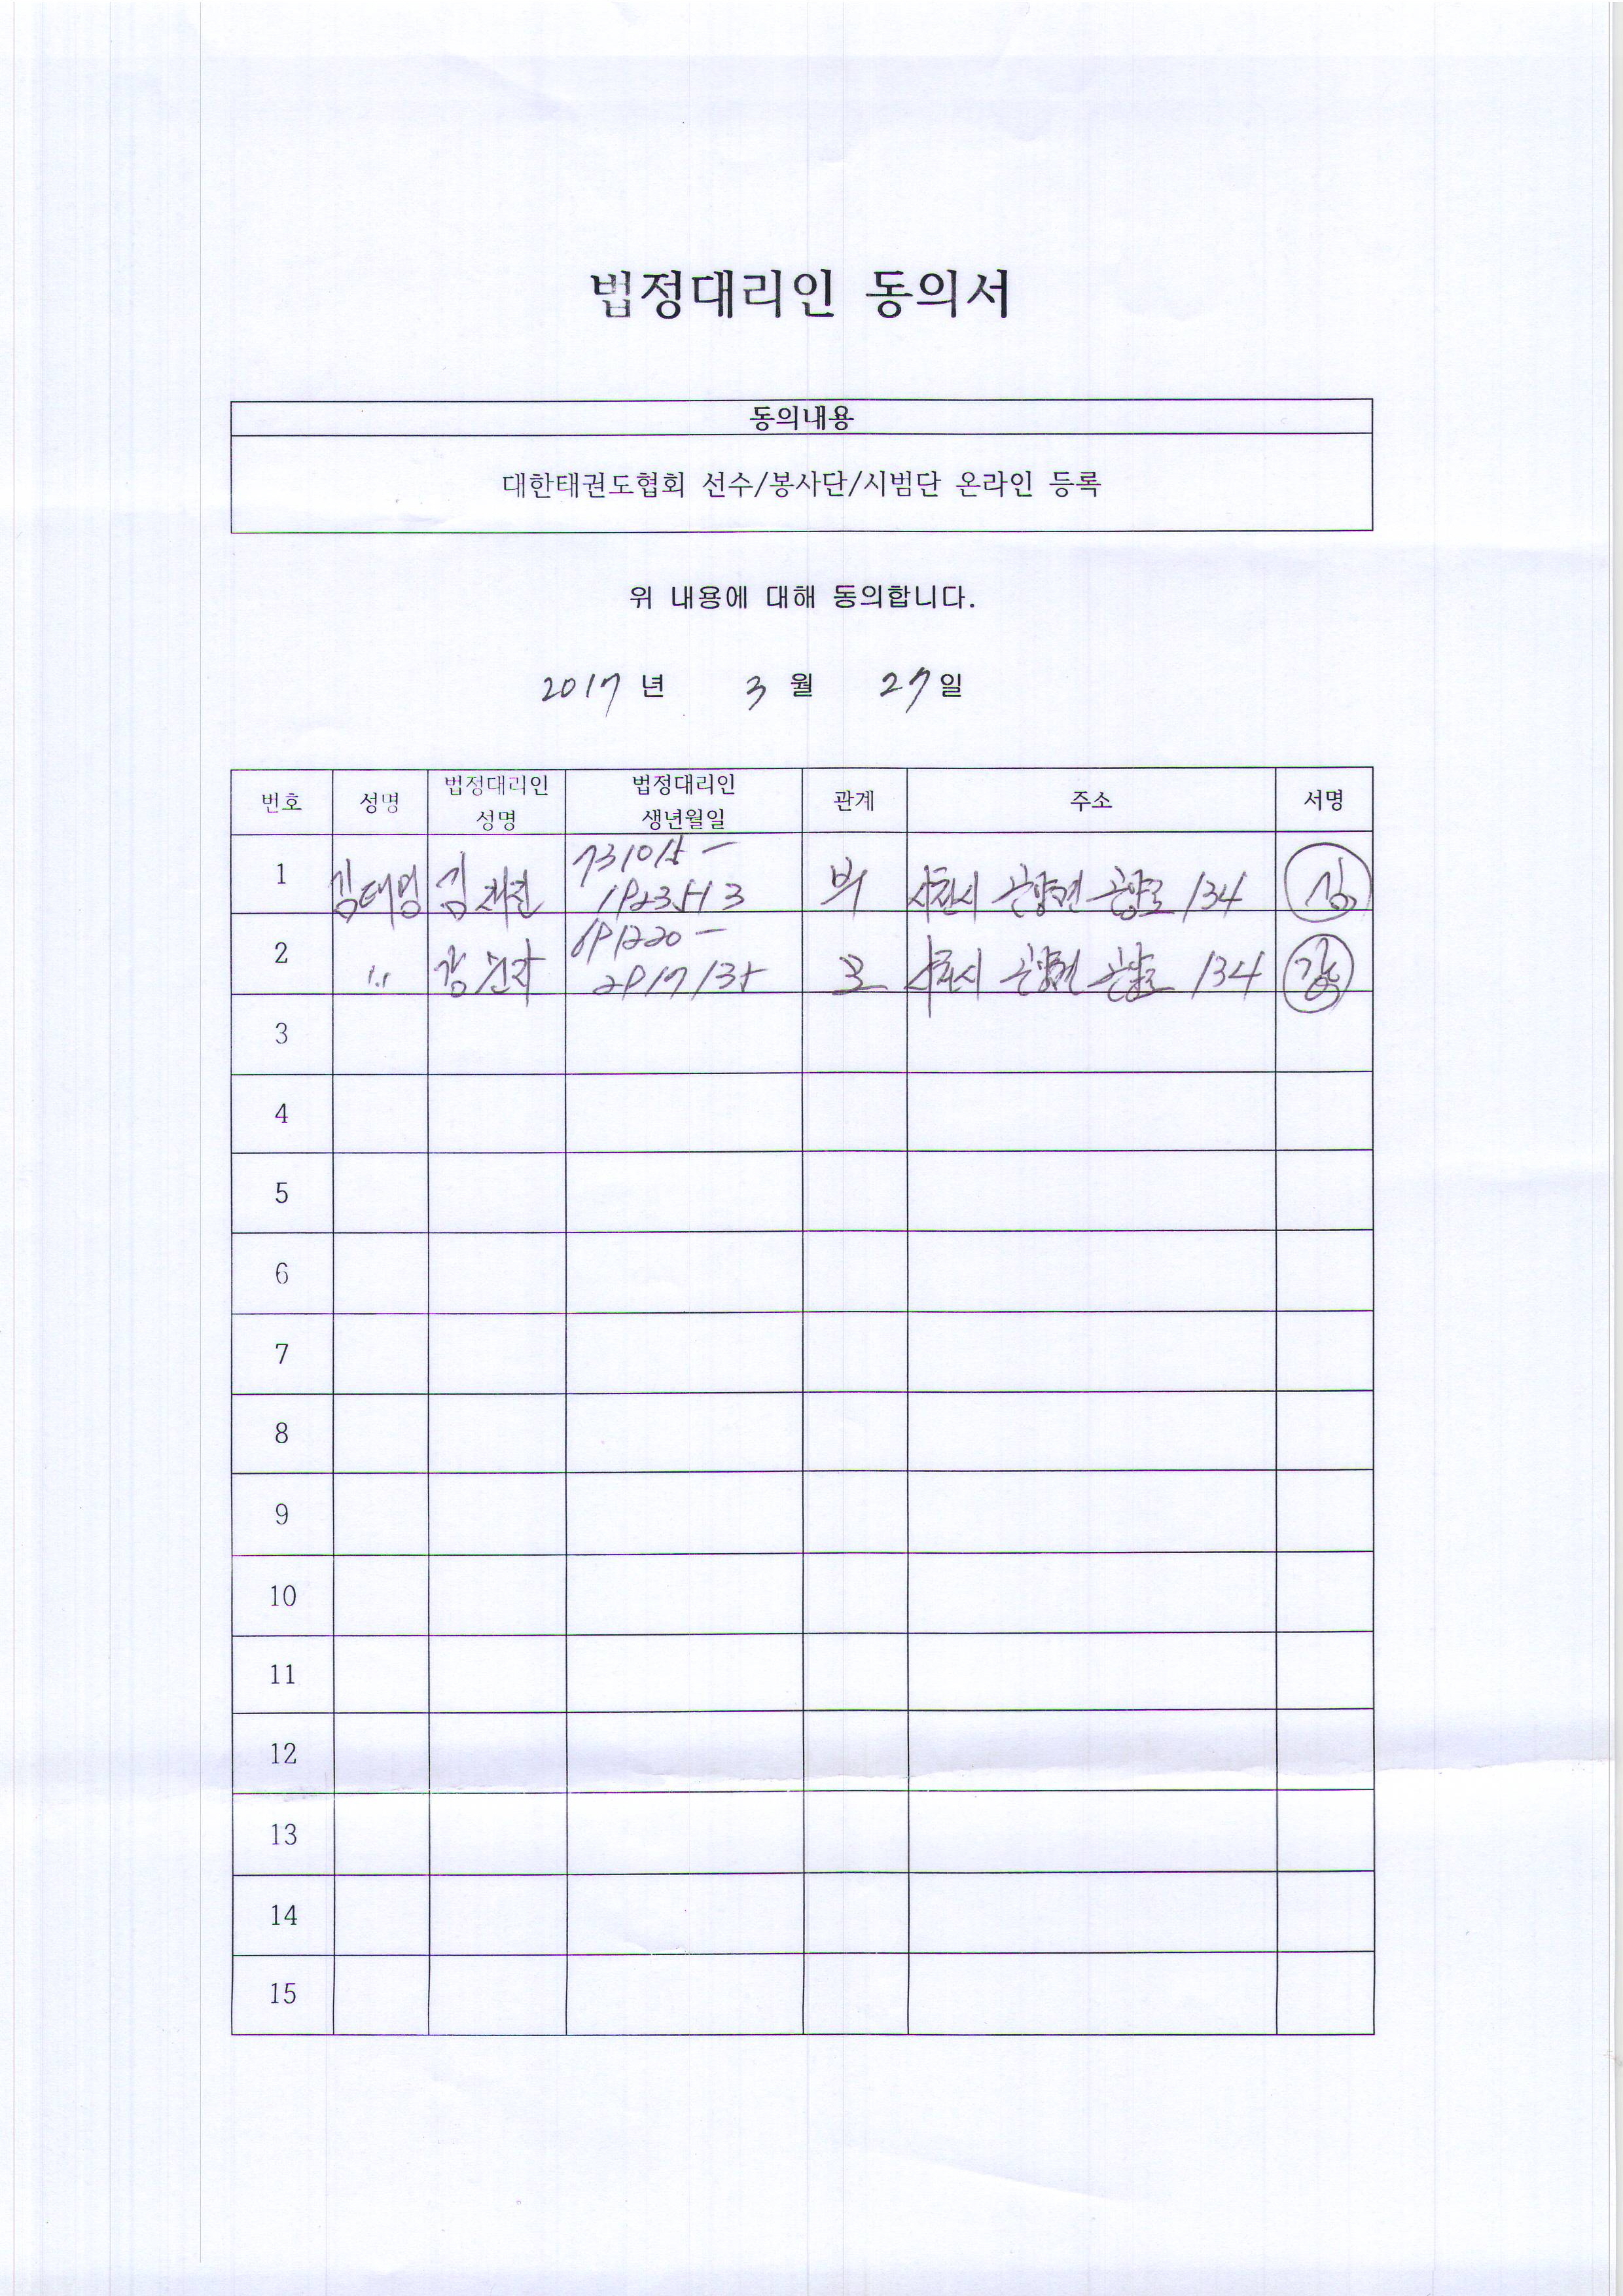 법정대리인 동의서
동의내용
대한태권도협회 선수/봉사단/시범단 온라인 등록
위 내용에 대해 동의합니다.
2017 년 3 월 27 일
번호 성명 법정대리인 성명 법정대리인 생년월일 관계 주소 서명
1 김태명 김 731015- 부 사천시 곤양면 곤양로 134 김
2 〃 강 691220- 2917135 모 사천시 곤양면 곤양로 134 강
3
4
5
6
7
8
9
10
11
12
13
14
15